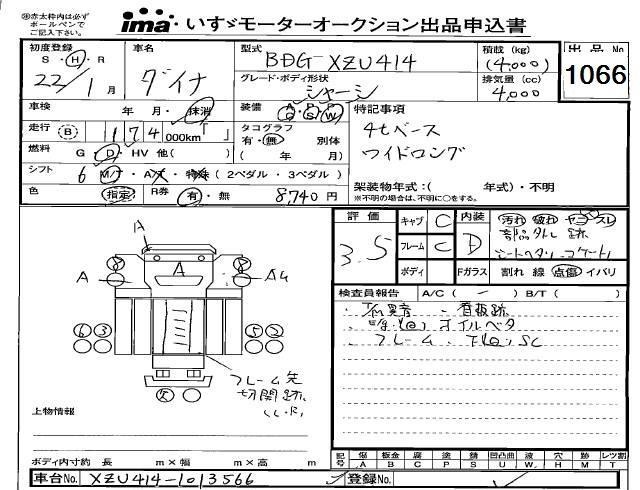 ※赤太枠内は必ず
ボールペンで
ご記入下さい。
ima いすゞモーターオークション出品申込書
初度登録
S・H・R
22/1月
車名
ダイナ
型式
BDG-XZU414
積載 (kg)
(4,000)
グレード・ボディ形状
シャーシ
排気量 (cc)
4,000
出品No
1066
車検
年 月・抹消
装備
A P P
C S W
特記事項
4tベース
ワイドロング
走行 B 174 000km「 」
タコグラフ
有・無 別体
( 年 月)
燃料 G・D・HV 他( )
シフト 6 M/T・A/T・特殊 (2ペダル・3ペダル)
架装物年式:( 年式)・不明
※不明の場合は、不明に○をする。
色 (指定) R券 有・無 8,740円
評価
3.5
キャブ C
フレーム C
ボディ
内装
D
汚れ 破れ ヤニ コゲ スレ
部品外し跡
Fガラス 割れ 線 点傷 イバリ
検査員報告 A/C( - ) B/T( )
・看板跡
オイルベタ
・フレーム、下回りSC
A
8 8
A A A4
6 3 5 2
フレーム先
切開跡
上物情報
ボディ内寸約 長 m×幅 m×高 m
記号 傷A 板金B 腐C 塗P 錆S 凹凸曲U 波W 穴H 跡M レツ割T
車台No. XZU414-1013566
登録No.